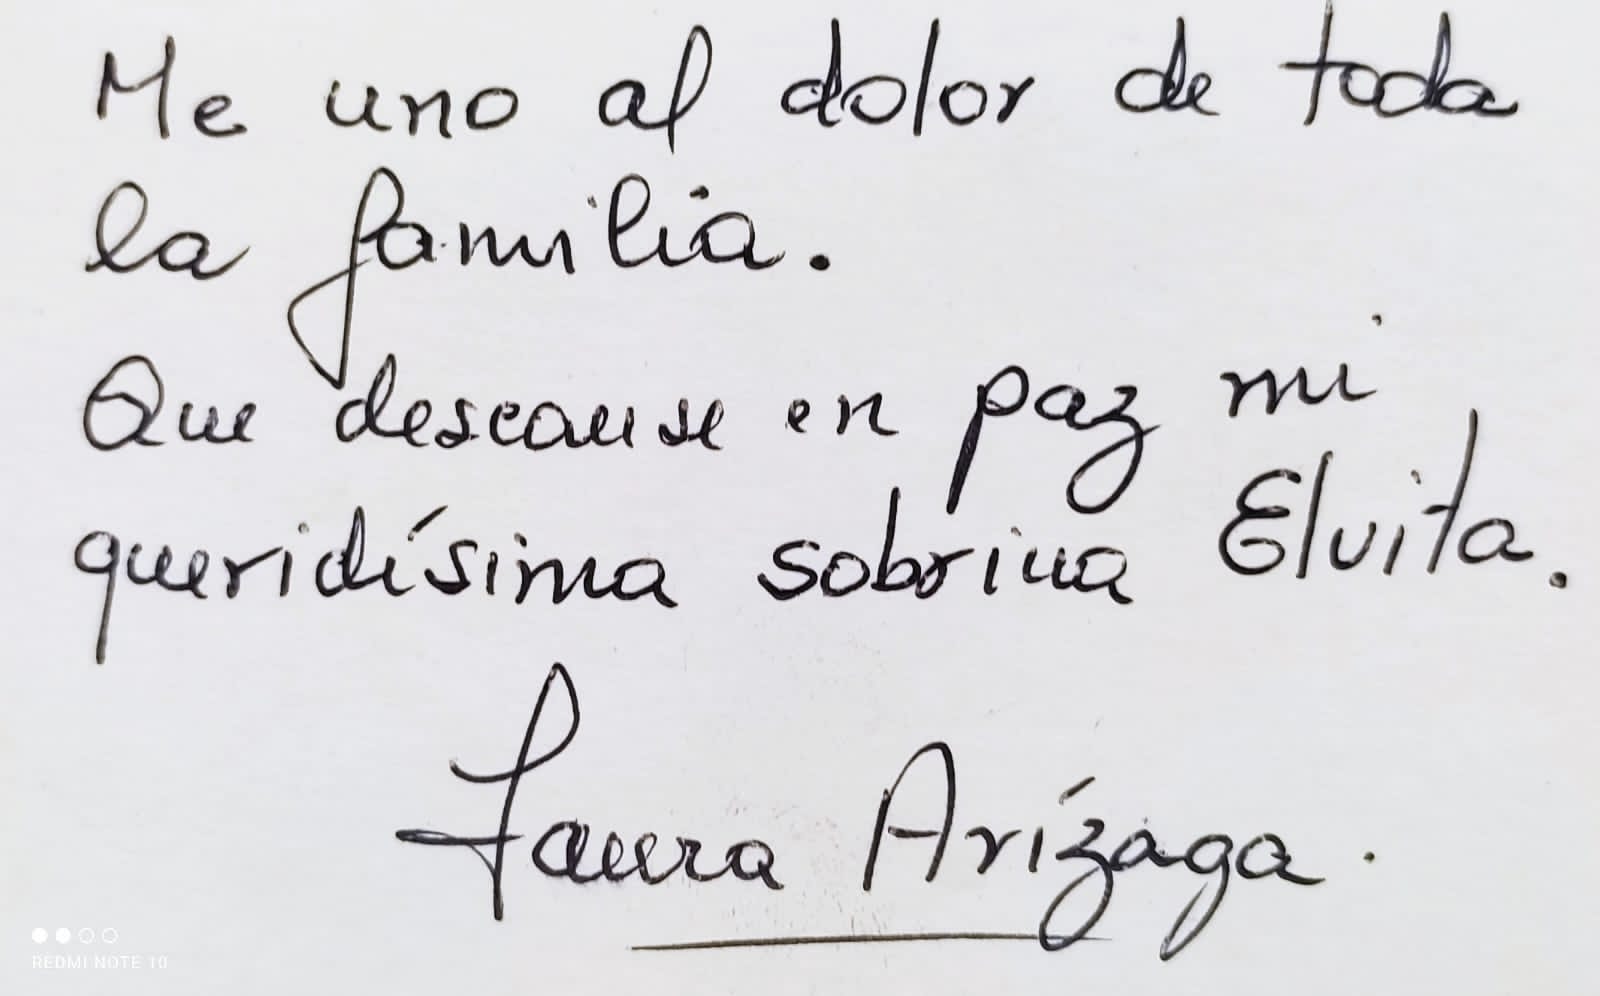 Me uno al dolor de toda
la familia.
Que descanse en paz mi
queridísima sobrina Elvita.
Laura Arízaga.
REDMI NOTE 10